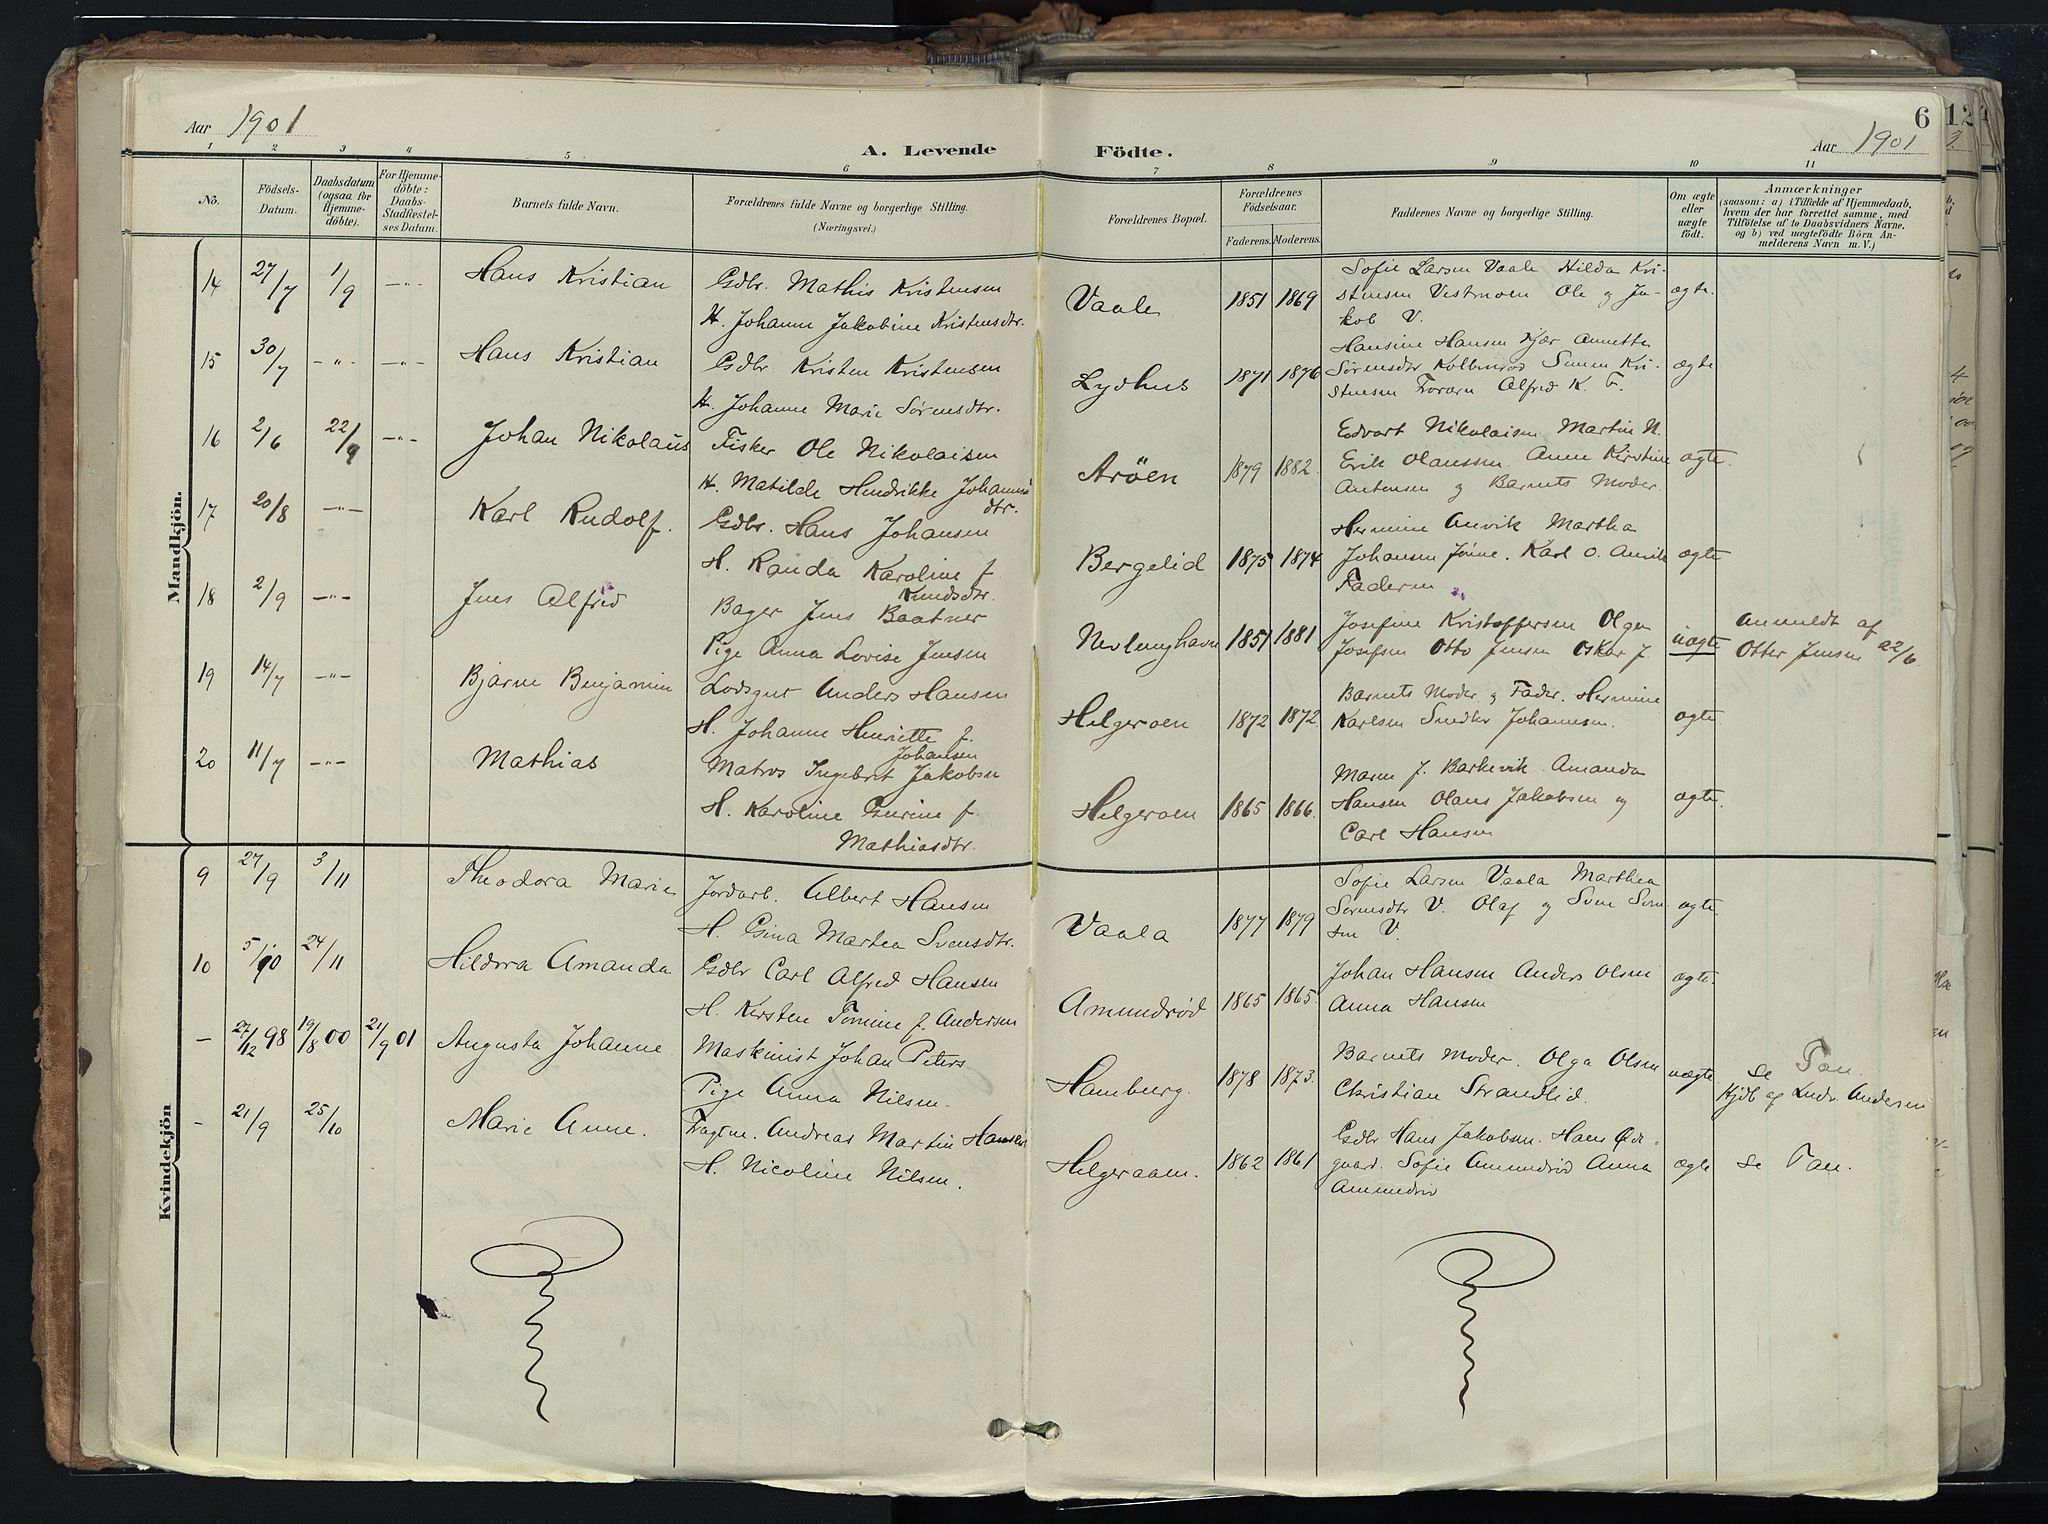 Aar 1901
A. Levende
Födte.
Aar 1901
6
12
1 2 3 4 5 6 7 8 9 10 11
No.
Födsels-Datum.
Daabsdatum (ogsaa for Hjemmedöbte).
For Hjemmedöbte: Daabs-Stadfæstelses Datum.
Barnets fulde Navn.
Forældrenes fulde Navne og borgerlige Stilling.
(Næringsvei.)
Forældrenes Bopæl.
Forældrenes Födselsaar.
Faderens. Moderens.
Faddernes Navne og borgerlige Stilling.
Om ægte eller uægte födt.
Anmærkninger
(saasom: a) i Tilfælde af Hjemmedaab,
hvem der har forrettet samme, med
Tilföielse af to Daabsvidners Navne.
og b) ved uægtefödte Börn Anmelderens Navn m. V.)
Mandkjön.
14 27/7 1/9 -"- Hans Kristian Gdbr. Mathis Kristensen
H. Johanne Jakobine Kristensdtr.
Vaale 1851 1869 Sofie Larsen Vaale Hilda Kri-
stensen Vestmoen Ole og Ja- ægte.
kob V.
15 30/7 -"- -"- Hans Kristian Gdbr. Kristen Kristensen
H. Johanne Marie Sørensdtr.
Lydhus 1871 1876 Hansine Hansen Kjær Annette
Sørensdtr Kolbenrød Simen Kri- ægte
stensen Alfred K. F.
16 2/6 22/9 -"- Johan Nikolaus Fisker Ole Nikolaisen
H. Matilde Hendrikke Johannsdtr.
Arøen 1879 1882. Edvart Nikolaisen Martin N.
Erik Olanssen. Anne Kirstine ægte.
Antensen og Barnets Moder.
17 20/8 -"- Karl Rudolf. Gdbr. Hans Johansen
H. Randa Karoline f.
Knudsdtr.
Bergelid 1875 1874 Hermine Anvik Martha
Johansen Karl O. Anvik ægte
Faderen
18 2/9 -"- Jens Alfred Bager Jens Baatner
Pige Anna Lovise Jensen
Nevlunghavn 1851 1881 Josefine Kristoffersen Olga
Josefsen Otto Jensen Oskar J. uægte
Anmeldt af
Otter Jensen 22/6.
19 14/7 -"- Bjarne Benjamin Lodsgut Anders Hansen
H. Johanne Henriette f.
Johansen
Helgeroen 1872 1872 Barnets Moder og Fader. Hermine
Karlsen Johannsen. ægte
20 11/7 -"- Mathias Matros Ingebret Jakobsen
H. Karoline Gurine f.
Mathiasdtr.
Helgeroen 1865 1866 Maren J. Barkevik Amanda
Hansen Olaus Jakobsen og ægte.
Carl Hansen
Kvindekjön
9 27/9 3/11 Theodora Marie Jordarb. Albert Hansen
H. Gina Martea Svensdtr.
Vaala 1877 1879 Sofie Larsen Vaala Marthea
Sørensdtr V. Olaf og Sven Sven ægte.
sen V.
10 5/10 24/11 Hildora Amanda Gdbr Carl Alfred Hansen
H. Kirsten Tomine f. Andersen
Amundrød 1865 1865. Johan Hansen Anders Olsen ægte.
Anna Hansen
- 27/12 98 19/8 00 21/9 01 Augusta Johanne. Maskinist Johan Peters
Pige Anna Nilsen.
Hamburg. 1878 1873. Barnets Moder. Olga Olsen uægte.
Christian Strandlid.
se Tan.
Hjdb af Ludv. Andersen
- 21/9 25/10 Marie Anne. Fragtm. Andreas Martin Hansen
H. Nicoline Nilsen.
Helgeraaen. 1862 1861 Gdbr Hans Jakobsen. Hans Øde-
gaard. Sofie Amundrød Anna ægte se Tan.
Amundrød